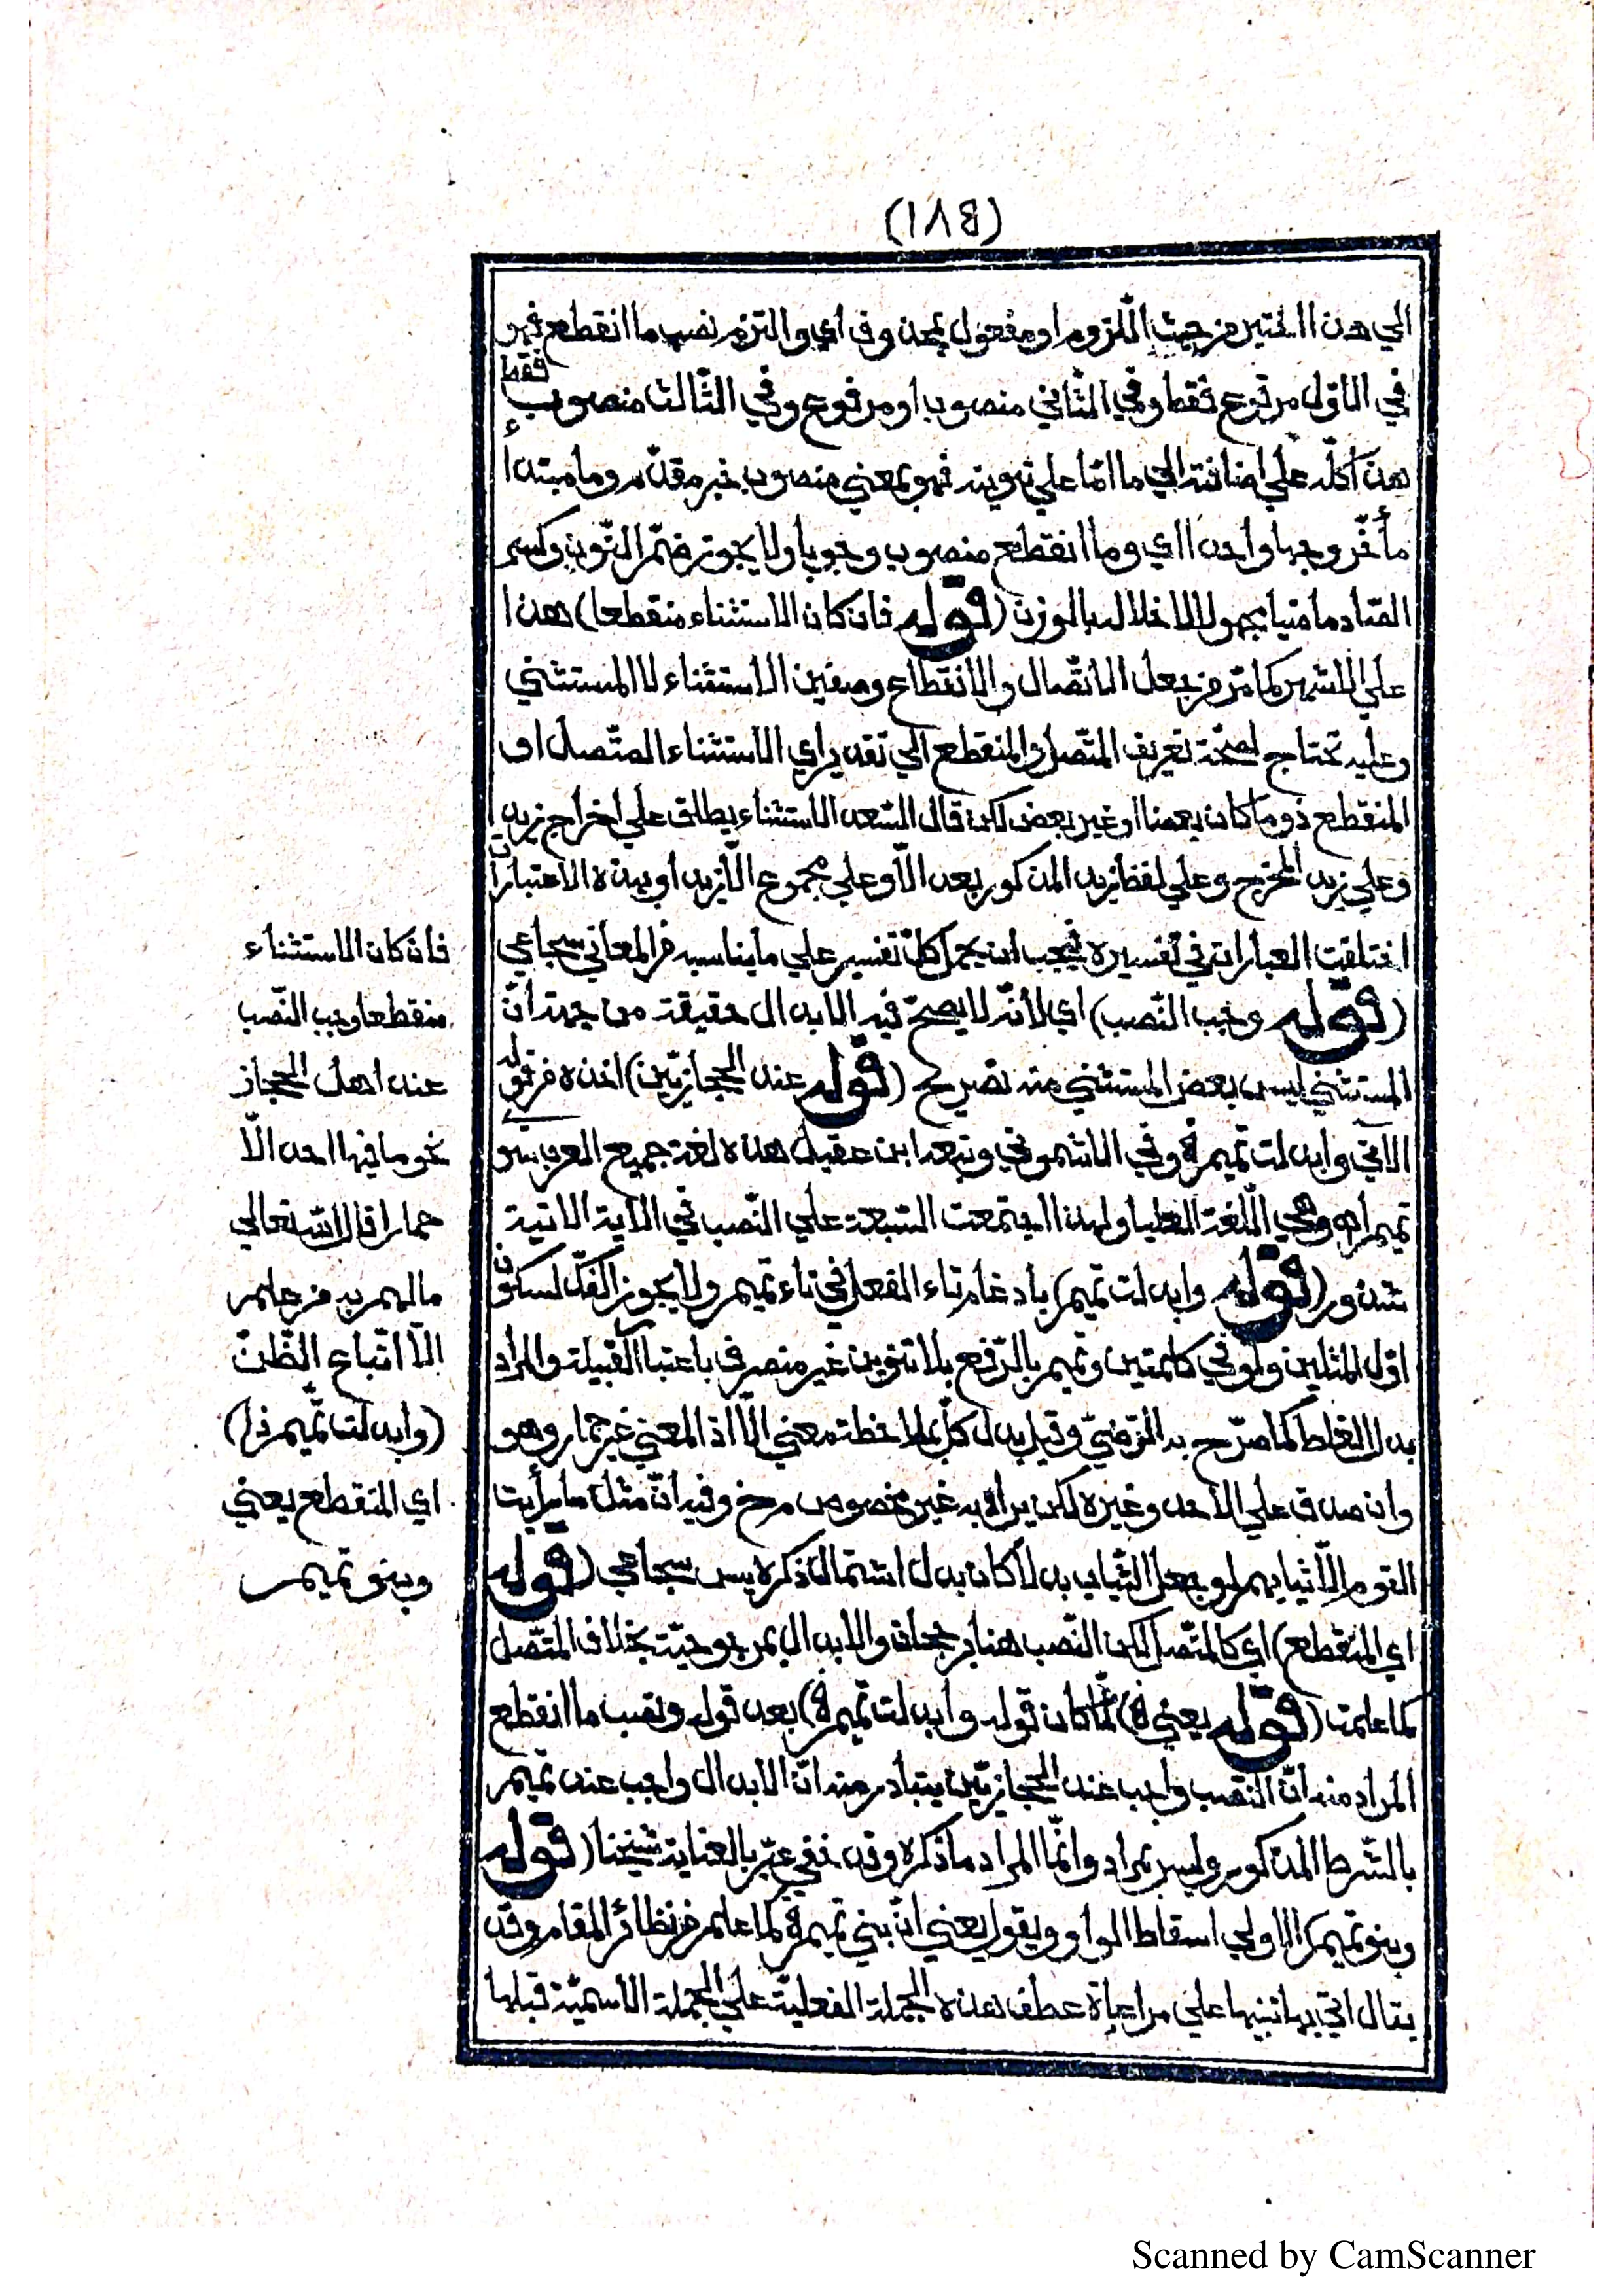 (١٨٥)
الي هذا المتين من حيث اللزوم او مفعول بمحذوف اي والتزم نصب ما انقطع فهو
في الاول مرفوع فقط وفي الثاني منصوب او مرفوع وفي الثالث منصوب فقط
هذا كله علي اضافته الي ما امّا علي تنوينه فهو بمعني منصوب خبر مقدّم وما مبتدأ
مأخّر وجها واحدا اي وما انقطع منصوب وجوبا ولا يجوز ضمّ التّنوين وكسر
الصّاد ماضيا مجهولا لاخلاله بالوزن (قوله فان كان الاستثناء منقطعا) هذا
علي الاشهر كما مرّ من جعل الاتّصال والانقطاع وصفين الاستثناء لا المستثني
وعليه تحتاج لصحّة تعريف المتّصل والمنقطع الي تقدير اي الاستثناء المتّصل او
المنقطع ذو ما كان بعضا او غير بعض لكن قال السّعد الاستثناء يطلق علي اخراج زيد
وعلي زيد المخرج وعلي لفظ زيد المذكور بعد الّا وعلي مجموع الّا زيد او بهذه الاعتبارات
اختلفت العبارات في تفسيره فيجب ان يحمل كلّ تفسير علي ما يناسبه من المعاني سجاعي
(قوله وجب النّصب) اي لانّه لا يصحّ فيه الابدال حقيقة من جهة انّ
المستثني ليس بعض المستثني منه تصريح (قوله عند الحجازيّين) اخذه من قوله
الاتي وابدلت تميم ۿ وفي الاشموني وتبعه ابن عقيل هذه لغة جميع العرب سو
تميم اه وهي اللّغة العليا ولهذا اجتمعت السّبعة علي النّصب في الآية الاتية
شذور (قوله وابدلت تميم) بادغام تاء الفعل في تاء تميم ولا يجوز الفكّ لسكون
اوّل المثلين ولو في كلمتين وتميم بالرّفع بلا تنوين غير منصرف باعتبا القبيلة والمراد
بدل الغلط كما صرّح به الرّضيّ وقيل بدل كلّ بملاحظة معني الّا اذ المعني غير حمار وهو
وان صدق علي الاحد وغيره لكن يراد به غير مخصوص مرخ وفيه انّ مثل ما رأيت
القوم الّا ثيابهم لو جعل الثّياب بدلا كان بدل اشتمال ذكره يس سجاعي (قوله
اي المنقطع) اي كالمتّصل لكن النّصب هنا برجحان والابدال بمرجوحيّة بخلاف المتّصل
كما علمت (قوله يعني ۿ) لمّا كان قوله وابدلت تميم ۿ) بعد قوله ونصب ما انقطع
المراد منه انّ النّصب واجب عند الحجازيّين يتبادر منه انّ الابدال واجب عند تميم
بالشّرط المذكور وليس بمراد وانّما المراد ما ذكره وقد خفي عبّر بالعناية شيخنا (قوله
وبنو تميم ۿ) الاولي اسقاط الواو ويقول يعني انّ بني تميم ۿ كما علم من نظائر المقام وقد
يقال اتي بها تنبيها علي مراعاة عطف هذه الجملة الفعليّة علي الجملة الاسميّة قبلها
فان كان الاستثناء
منقطعا وجب النّصب
عند اهل الحجاز
نحو ما فيها احد الّا
حمارا قال الله تعالي
ما لهم به من علم
الّا اتّباع الظّنّ
(وابدلت تميم ذا)
اي المنقطع يعني
وبنو تميم
Scanned by CamScanner